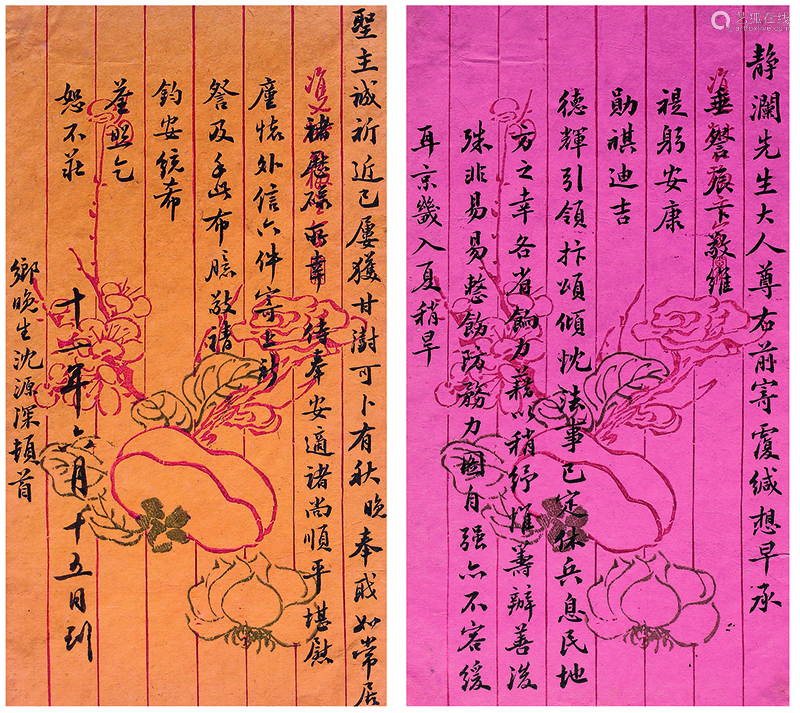 静瀾先生大人尊右前寄覆缄想早承
垂詧猿卞敬維
禔躬安康
勛祺迪吉
德輝引領抃頌傾忱法事已定休兵息民地
方之幸各省餉力藉以稍紓惟籌辦善後
殊非易易整飭防務力圖自强亦不容緩
耳京畿入夏稍旱
聖主誠祈近已屢獲甘澍可卜有秋晚奉職如常居
諸歷碌所幸侍奉安適諸尚順平堪慰
廑懷外信六件寄上祈
詧及手此布臆敬請
鈞安統希
荃照乞
恕不莊
鄉晚生沈源深頓首
十一年六月十五日到
在线